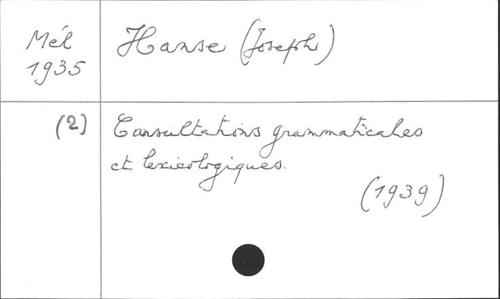 Mél
1935
Hanse (Joseph)
(2)
Consultations grammaticales
et lexicologiques.
(1939)